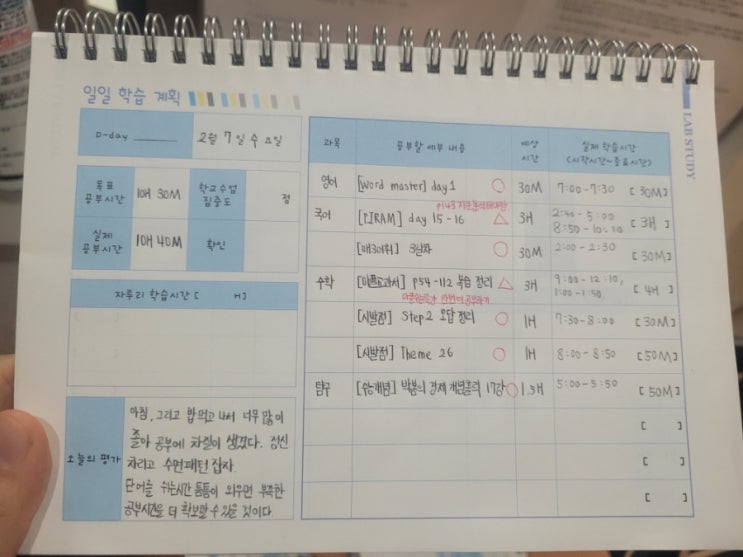 일일 학습 계획
LAB STUDY
D-day
2월 7일 수요일
목표 공부시간
10H 30M
학교수업 집중도
점
실제 공부시간
10H 40M
확인
자투리 학습시간 [ H]
오늘의 평가
아침, 그리고 밥 먹고 나서 너무 많이
졸아 공부에 차질이 생겼다. 정신
차리고 수면패턴 잡자.
단어를 쉬는시간 틈틈이 외우면 부족한
공부시간을 더 확보할 수 있을 것이다.
과목 공부할 세부 내용 예상 시간 실제 학습시간 (시작시간~종료시간)
영어 [Word master] day 1 ○ 30M 7:00-7:30 [30M]
p143
국어 [PIRAM] day 15-16 △ 3H 2:40-5:00 8:50-10:10 [3H]
[매3어휘] 3일차 ○ 30M 2:00-2:30 [30M]
수학 [마플교과서] p54-112 복습 정리 △ 3H 9:00-12:10, 1:00-1:50 [4H]
[시발점] Step 2 오답 정리 ○ 1H 7:30-8:00 [30M]
[시발점] Theme 26 ○ 1H 8:00-8:50 [50M]
탐구 [수능개념] 박봄의 경제 개념 17강 ○ 1.5H 5:00-5:50 [50M]
[ ]
[ ]
[ ]